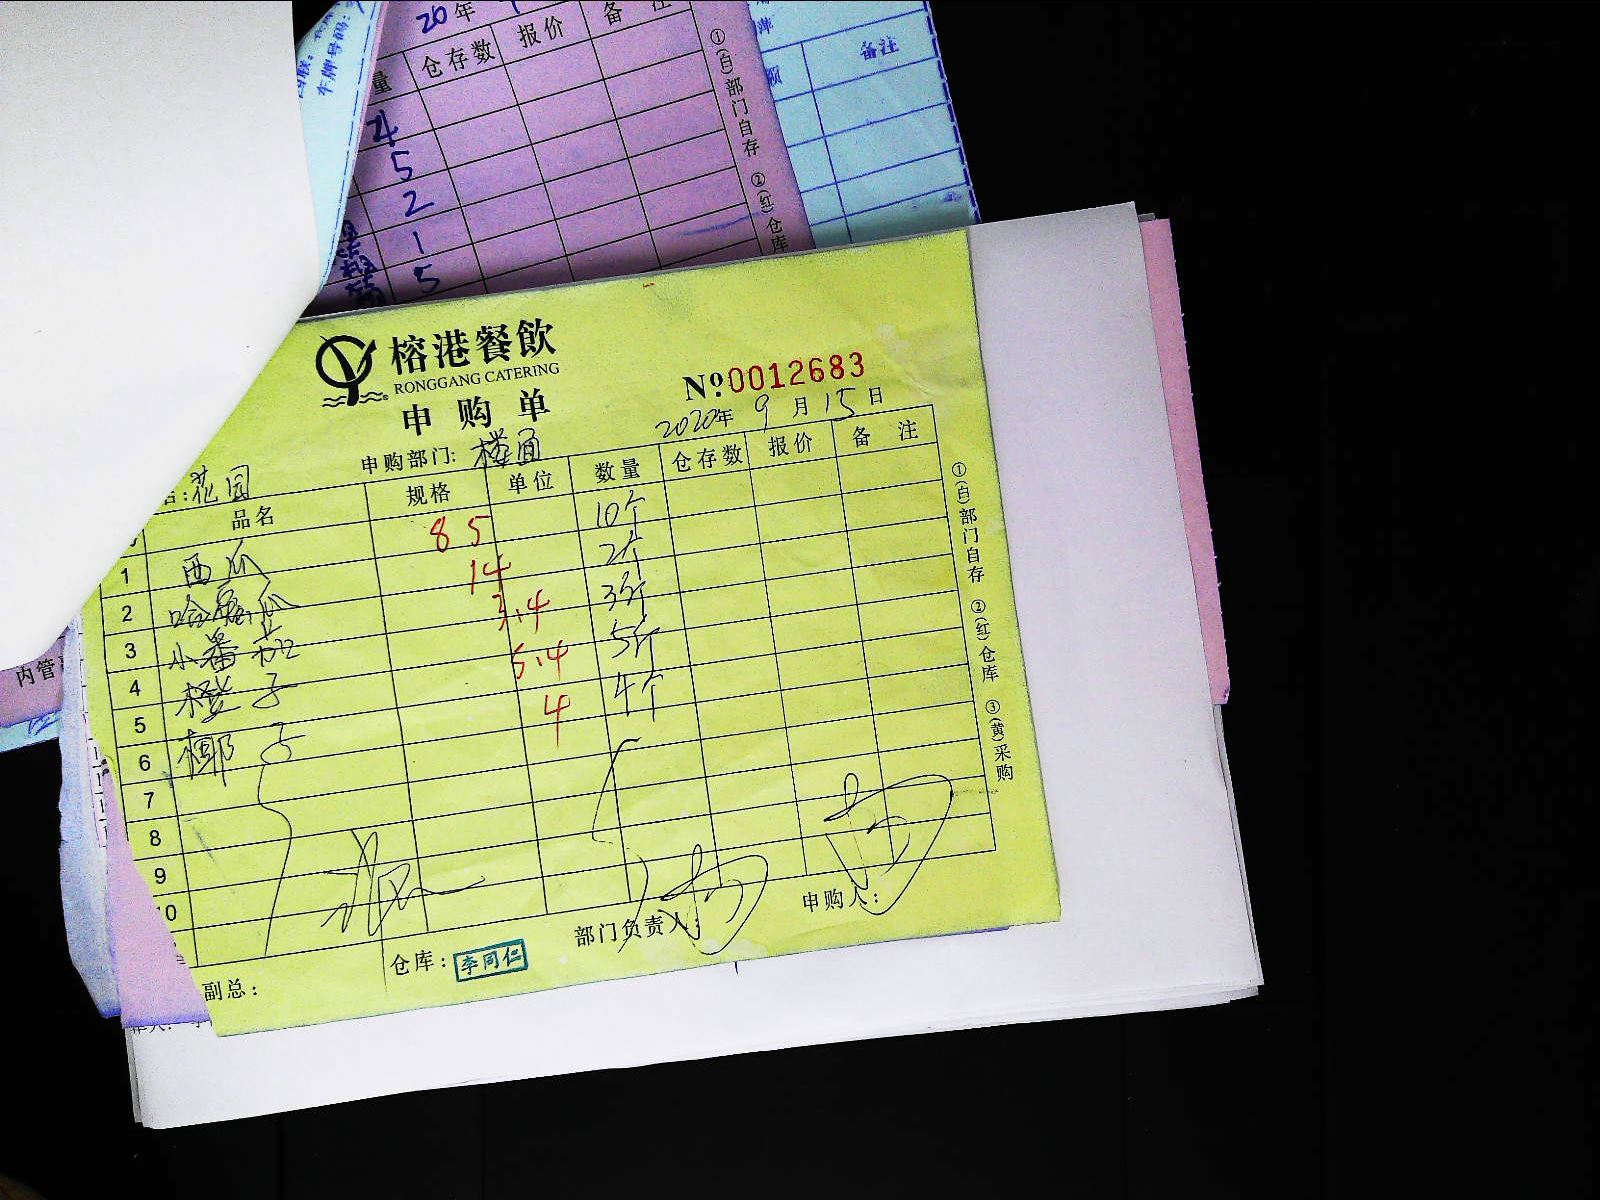 20年
量 仓存数 报价 备注
4
5
2
1
5
①(白)部门自存 ②(红)仓库
备注
车牌号码:
内管
榕港餐飲
RONGGANG CATERING
申购单
Nº:0012683
2020年 9月15日
申购部门: 楼面
店:花园
品名 规格 单位 数量 仓存数 报价 备注
1 西瓜 85 10个
2 哈密瓜 14 2个
3 小番茄 3.4 3斤
4 橙子 5.4 5斤
5 椰子 4 4个
6
7
8
9
10
①(白)部门自存 ②(红)仓库 ③(黄)采购
副总: 仓库: 李同仁 部门负责人: 申购人: